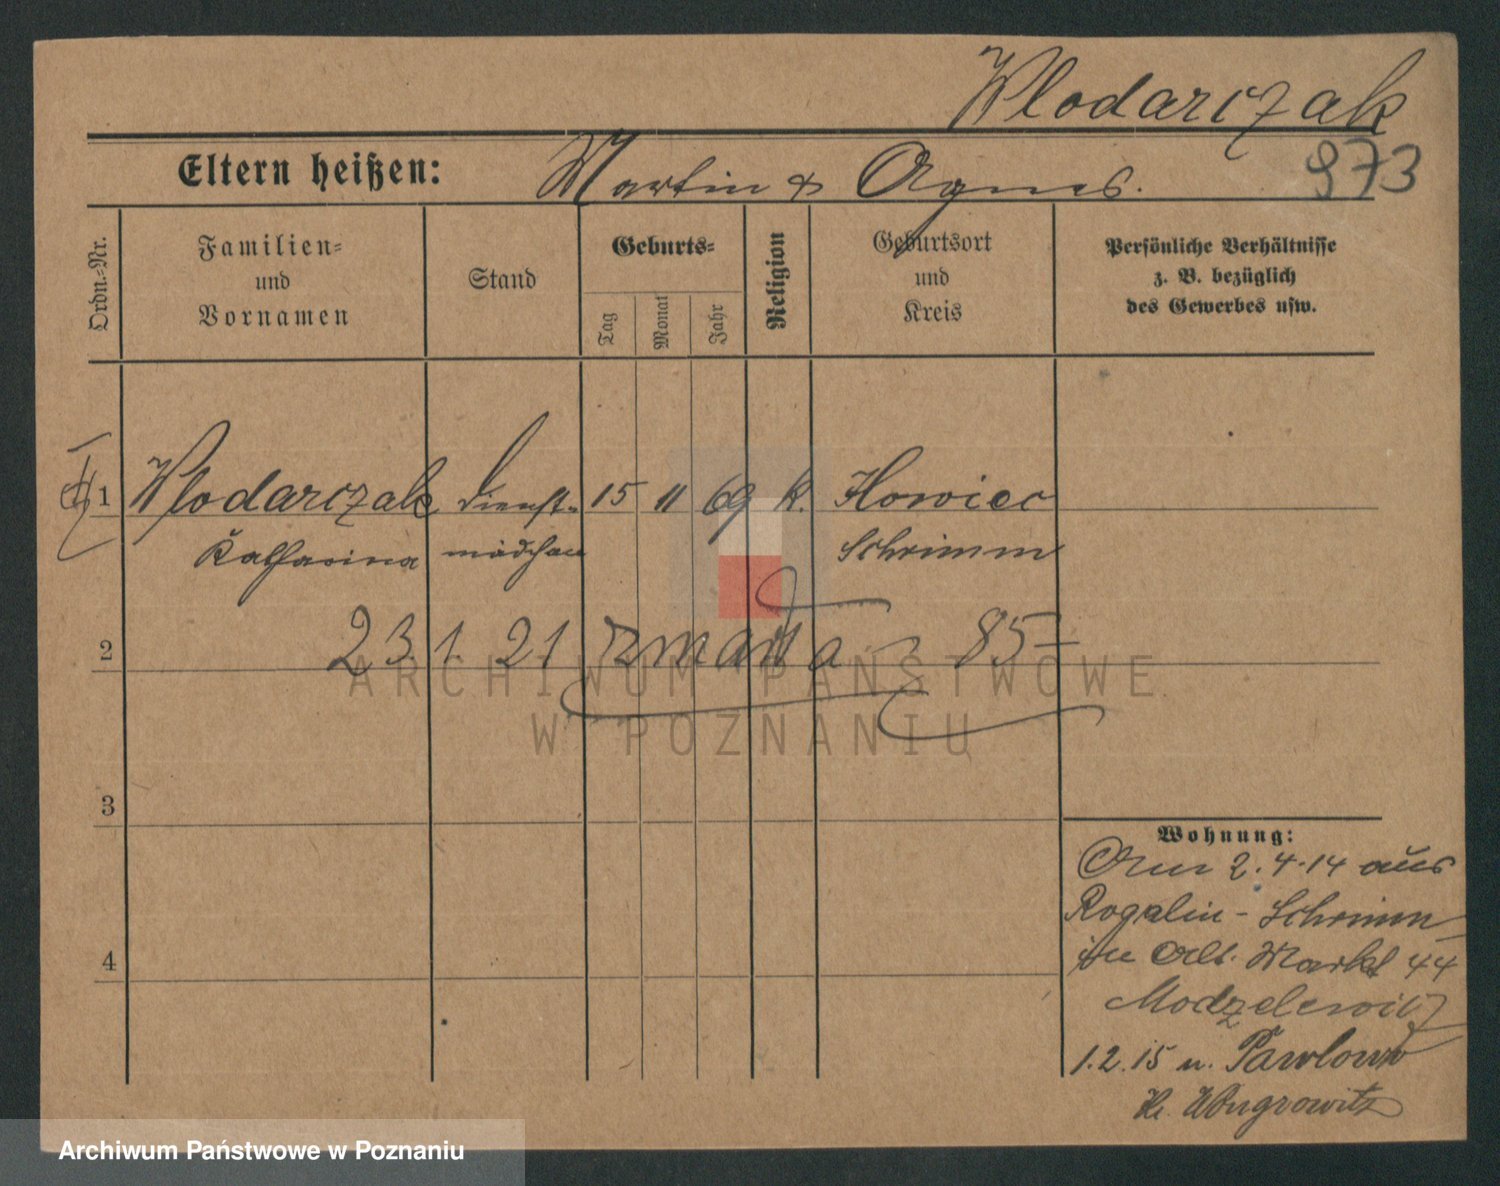 Wlodarczak
Eltern heißen: Martin & Agnes.
973
Ordn.-Nr.
Familien-
und
Vornamen
Stand
Geburts-
Tag
Monat
Jahr
Religion
Geburtsort
und
Kreis
Persönliche Verhältnisse
z. B. bezüglich
des Gewerbes usw.
1 Wlodarczak Dienst- 15 11 69 k. Ilowiec
Katharina mädchen Schrimm
2 23 1 21 zmarła 85
ARCHIWUM PAŃSTWOWE
W POZNANIU
3
4
Wohnung:
Am 2.4.14 aus
Rogalin - Schrimm
in Alt. Markt 44
Modzelewicz
1.2.15 n. Pawlowo
Kr. Wongrowitz
Archiwum Państwowe w Poznaniu